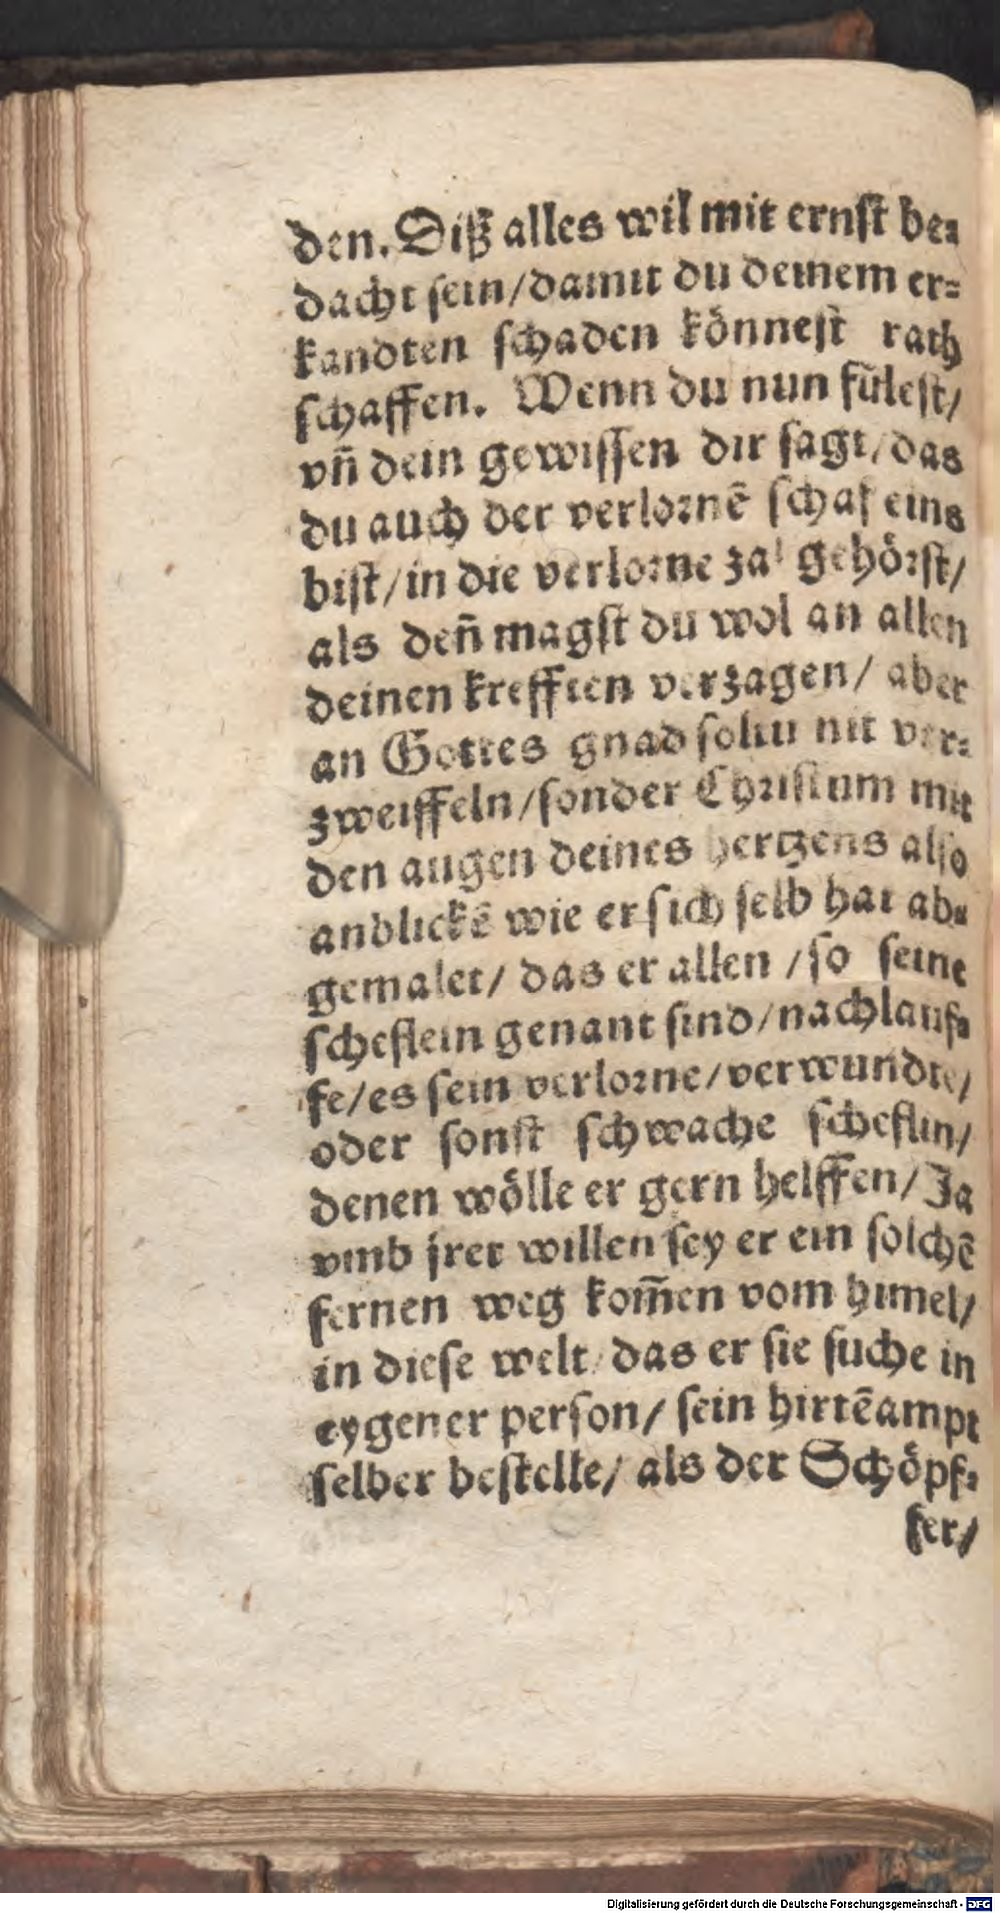 den. Diß alles wil mit ernſt be⸗
dacht ſein/damit du deinem er⸗
kandten ſchaden könneſt rath
ſchaffen. Wenn du nun fuͤleſt/
vn̄ dein gewiſſen dir ſagt/das
du auch der verlornē ſchaf eins
biſt/in die verlorne zal gehörſt/
als den̄ magſt du wol an allen
deinen krefften verzagen/ aber
an Gottes gnad ſoltu nit ver⸗
zweiffeln/ſonder Chriſtum mit
den augen deines hertzens alſo
anblickē wie er ſich ſelb hat ab⸗
gemalet/ das er allen /ſo ſeine
ſcheflein genant ſind/nachlauf⸗
fe/es ſein verlorne/verwundte/
oder ſonſt ſchwache ſcheflin/
denen wölle er gern helffen/Ja
vmb jret willen ſey er ein ſolchē
fernen weg kom̄en vom himel/
in dieſe welt/das er ſie ſuche in
eygener perſon/ ſein hirtēampt
ſelber beſtelle/ als der Schöpf⸗
fer/
Digitalisierung gefördert durch die Deutsche Forschungsgemeinschaft - DFG